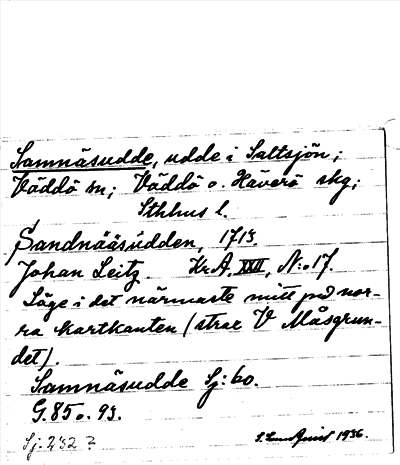 Samnäsudde, udde i Saltsjön;
Väddö sn; Väddö o. Häverö skg;
Sthlms l.
Sandnääsudden, 1713.
Johan Leitz. Kr.A. XXII, N:o 17.
Läge i det närmaste mitt på nor-
ra kartkanten (strax V Måsgrun-
det).
Samnäsudde Sj: 60.
G. 85 o. 93.
Sj: 232 ?
1936.